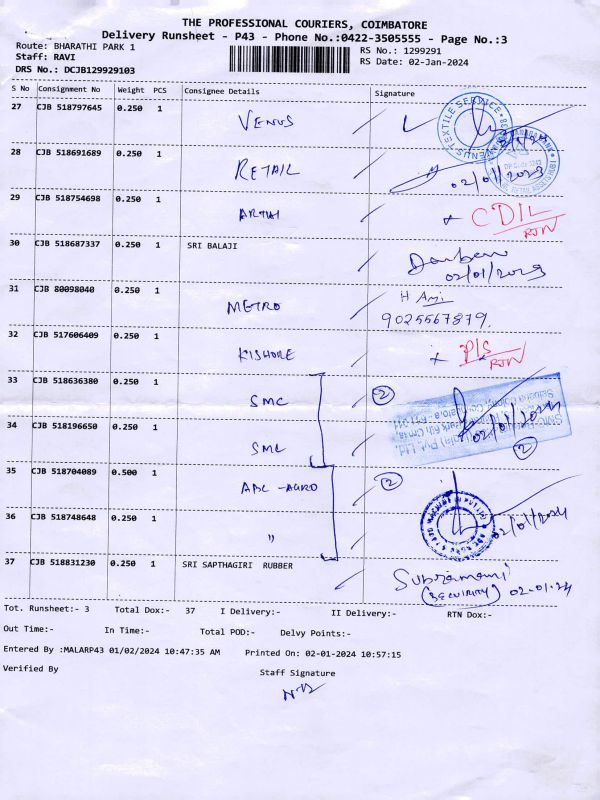 THE PROFESSIONAL COURIERS, COIMBATORE
Delivery Runsheet - P43 - Phone No.:0422-3505555 - Page No.:3
Route: BHARATHI PARK 1 RS No.: 1299291
Staff: RAVI RS Date: 02-Jan-2024
DRS No.: DCJB129929103
S No Consignment No Weight PCS Consignee Details Signature
27 CJB 518797645 0.250 1 VENUS
VENUS TEXTILE SERVICE
28 CJB 518691689 0.250 1 RETAIL 02/01/2023
29 CJB 518754698 0.250 1 ARTHI CDIL
RTN
30 CJB 518687337 0.250 1 SRI BALAJI
02/01/2023
31 CJB 80098040 0.250 1 METRO
9025567879.
32 CJB 517606409 0.250 1 KISHORE P/S
RTN
33 CJB 518636380 0.250 1 SMC 2
34 CJB 518196650 0.250 1 SMC 02/01/2024
2
35 CJB 518704089 0.500 1 ABC -AGRO 2
36 CJB 518748648 0.250 1 " 02/01/2024
37 CJB 518831230 0.250 1 SRI SAPTHAGIRI RUBBER Subramani
(SECURITY) 02-01-24
Tot. Runsheet:- 3 Total Dox:- 37 I Delivery:- II Delivery:- RTN Dox:-
Out Time:- In Time:- Total POD:- Delvy Points:-
Entered By :MALARP43 01/02/2024 10:47:35 AM Printed On: 02-01-2024 10:57:15
Verified By Staff Signature